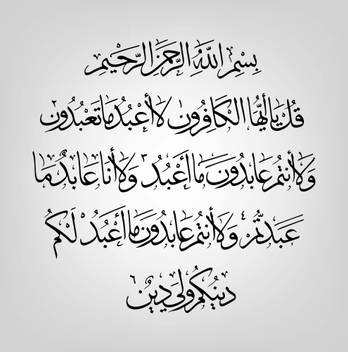 بِسْمِ اللهِ الرَّحْمَنِ الرَّحِيْمِ
قُلْ يَا أَيُّهَا الْكَافِرُونَ لَا أَعْبُدُ مَا تَعْبُدُونَ
وَلَا أَنتُمْ عَابِدُونَ مَا أَعْبُدُ وَلَا أَنَا عَابِدٌ مَا
عَبَدتُّمْ وَلَا أَنتُمْ عَابِدُونَ مَا أَعْبُدُ لَكُمْ
دِينُكُمْ وَلِيَ دِينِ